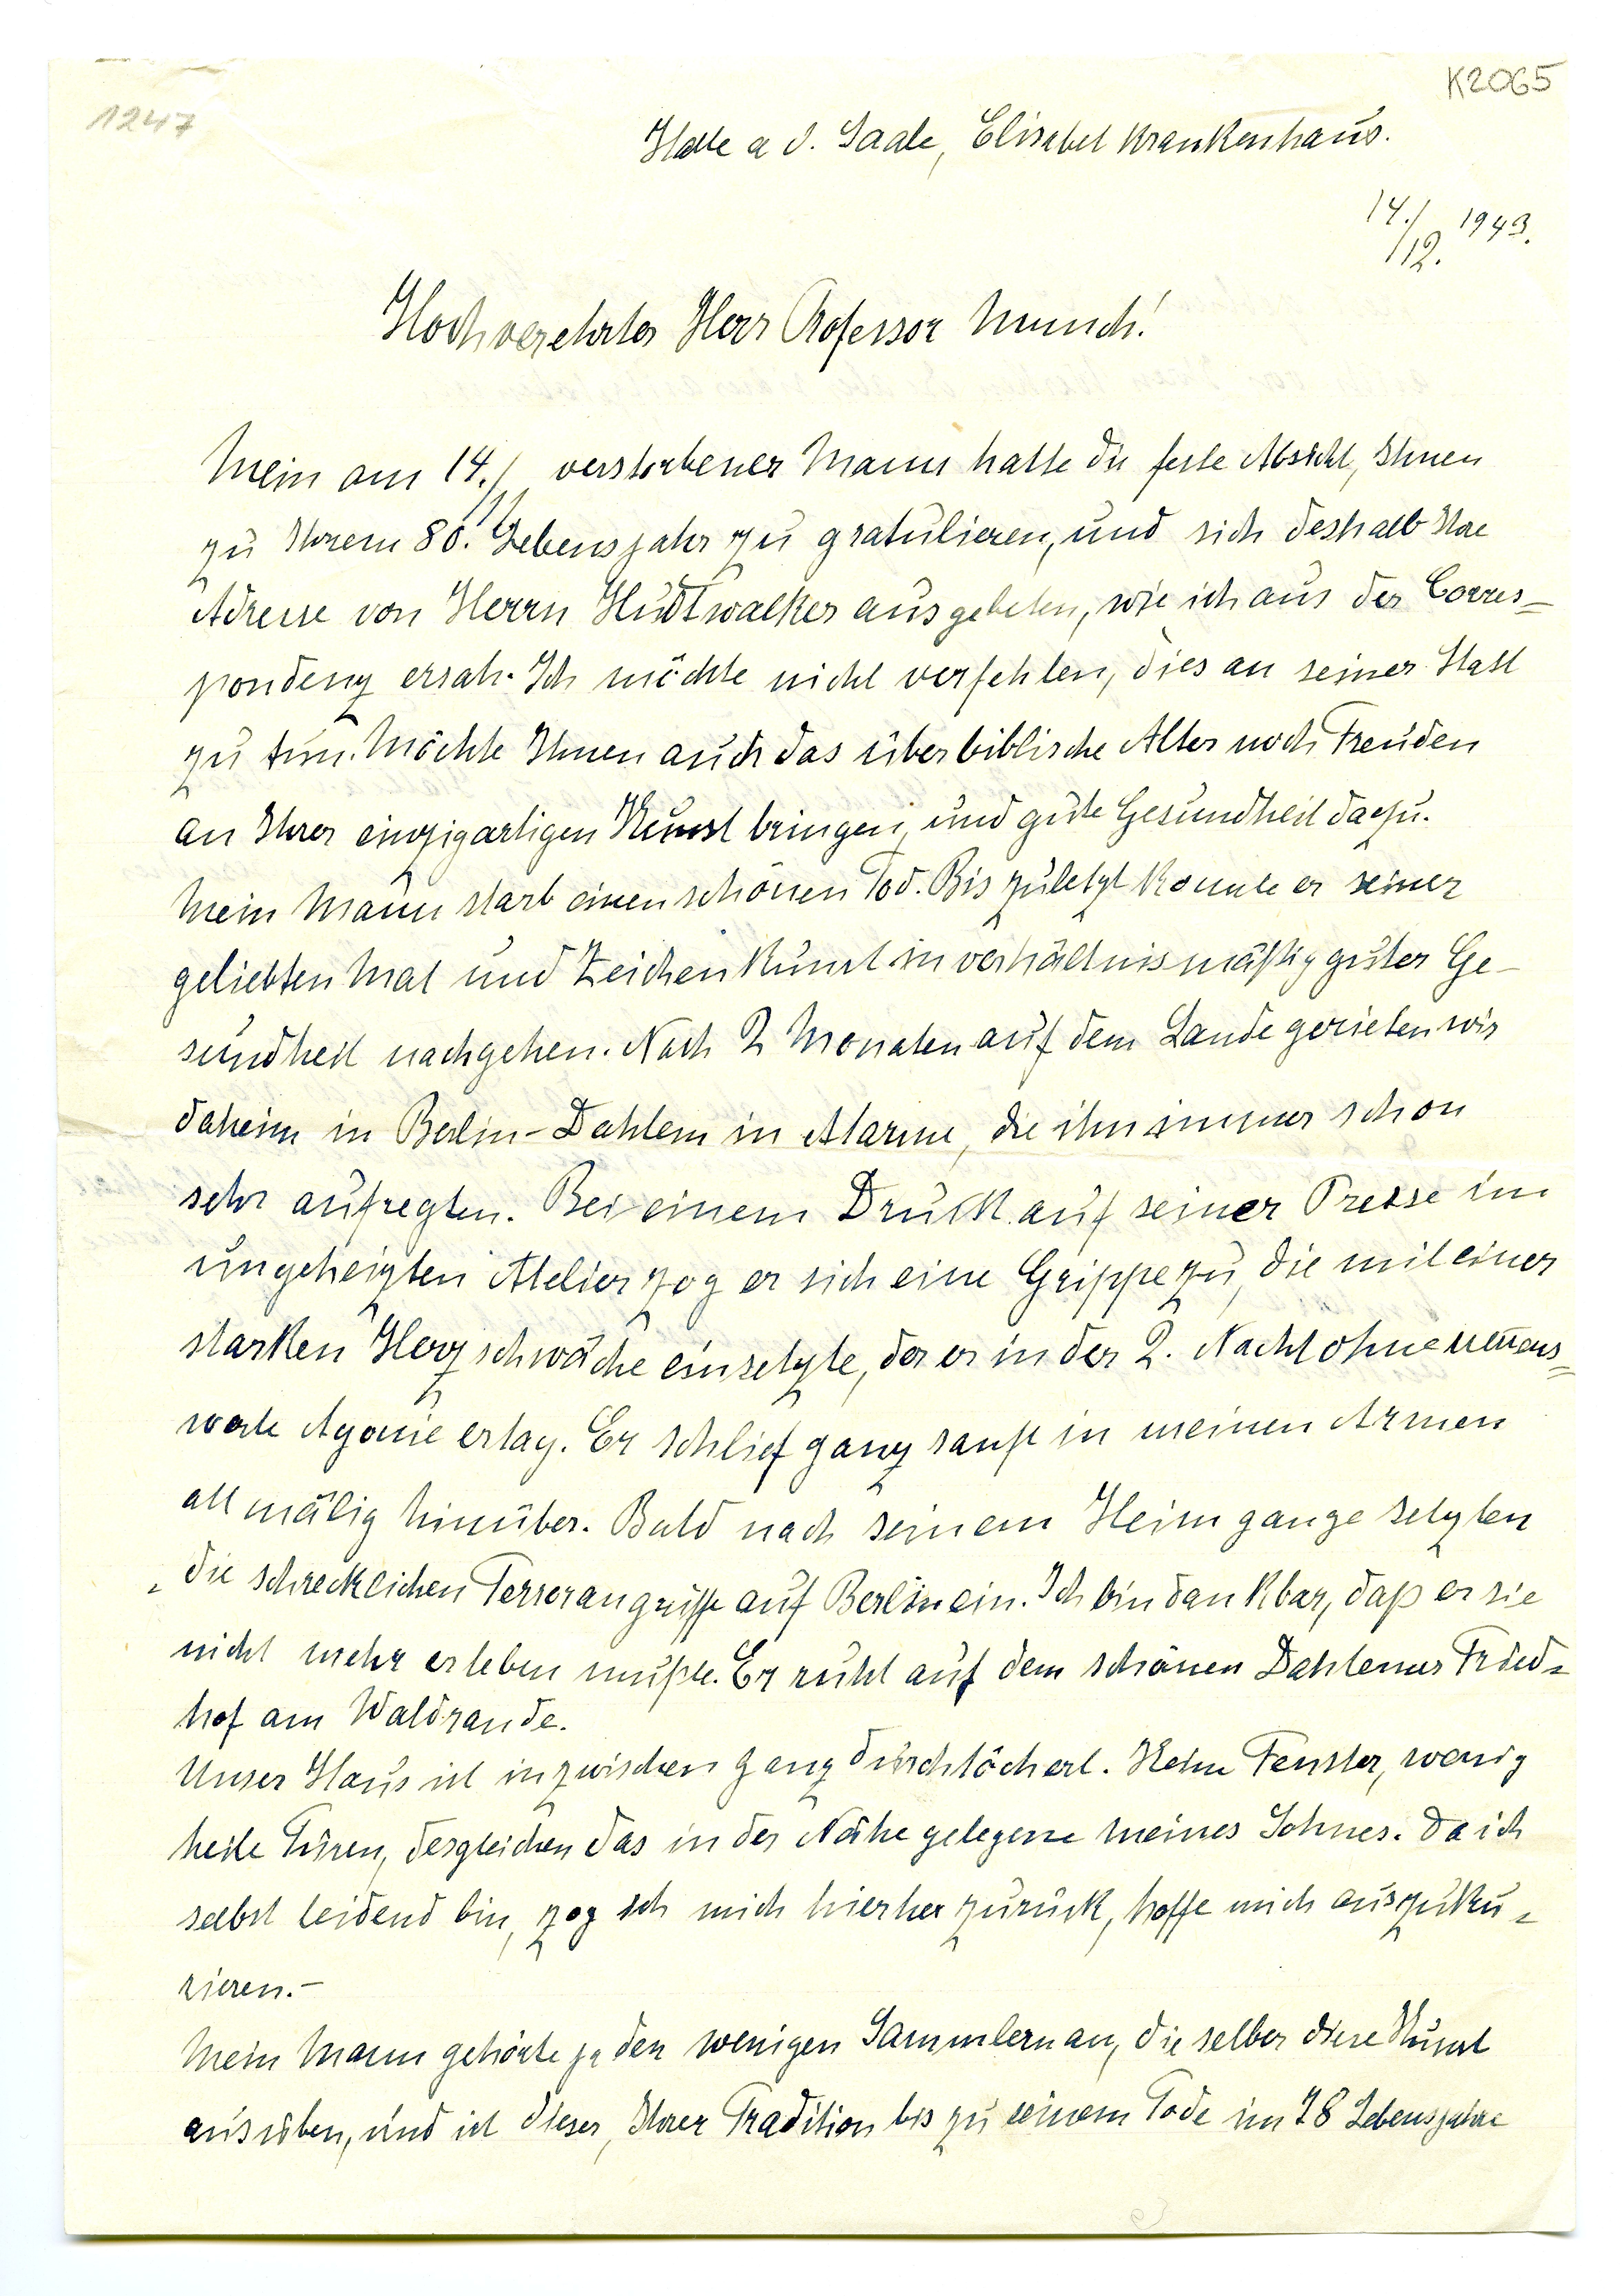 K2065
1247
Halle a d. Saale, Elisabet Krankenhaus.
14./12. 1943.
Hochverehrter Herr Professor Munch!
Mein am 14./11. verstorbener Mann hatte die feste Absicht, Ihnen
zu Ihrem 80. Lebensjahr zu gratulieren, und sich deshalb Ihre
Adresse von Herrn Hudtwalker ausgebeten, wie ich aus der Corres-
pondenz ersah. Ich möchte nicht verfehlen, dies an seiner Statt
zu tun. Möchte Ihnen auch das überbiblische Alter noch Freuden
an Ihrer einzigartigen Kunst bringen, und gute Gesundheit dazu.
Mein Mann starb einen schönen Tod. Bis zuletzt konnte er seiner
geliebten Mal und Zeichenkunst in verhältnismäßig guter Ge-
sundheit nachgehen. Nach 2 Monaten auf dem Lande gerieten wir
daheim in Berlin-Dahlem in Alarme, die ihn immer schon
sehr aufregten. Bei einem Druck auf seiner Presse im
ungeheizten Atelier zog er sich eine Grippe zu, die mit einer
starken Herzschwäche einsetzte, der er in der 2. Nacht ohne nennens-
werte Agonie erlag. Er schlief ganz sanft in meinen Armen
allmälig hinüber. Bald nach seinem Heimgange setzten
die schrecklichen Terrorangriffe auf Berlin ein. Ich bin dankbar, daß er sie
nicht mehr erleben mußte. Er ruht auf dem schönen Dahlemer Fried-
hof am Waldrande.
Unser Haus ist inzwischen ganz durchlöchert. Keine Fenster, wenig
heile Türen, desgleichen das in der Nähe gelegene meines Sohnes. Da ich
selbst leidend bin, zog ich mich hierher zurück, hoffe mich auszuku-
rieren.-
Mein Mann gehörte ja den wenigen Sammlern an, die selber diese Kunst
ausüben, und ist dieser, Ihrer Tradition bis zu seinem Tode im 78 Lebensjahre